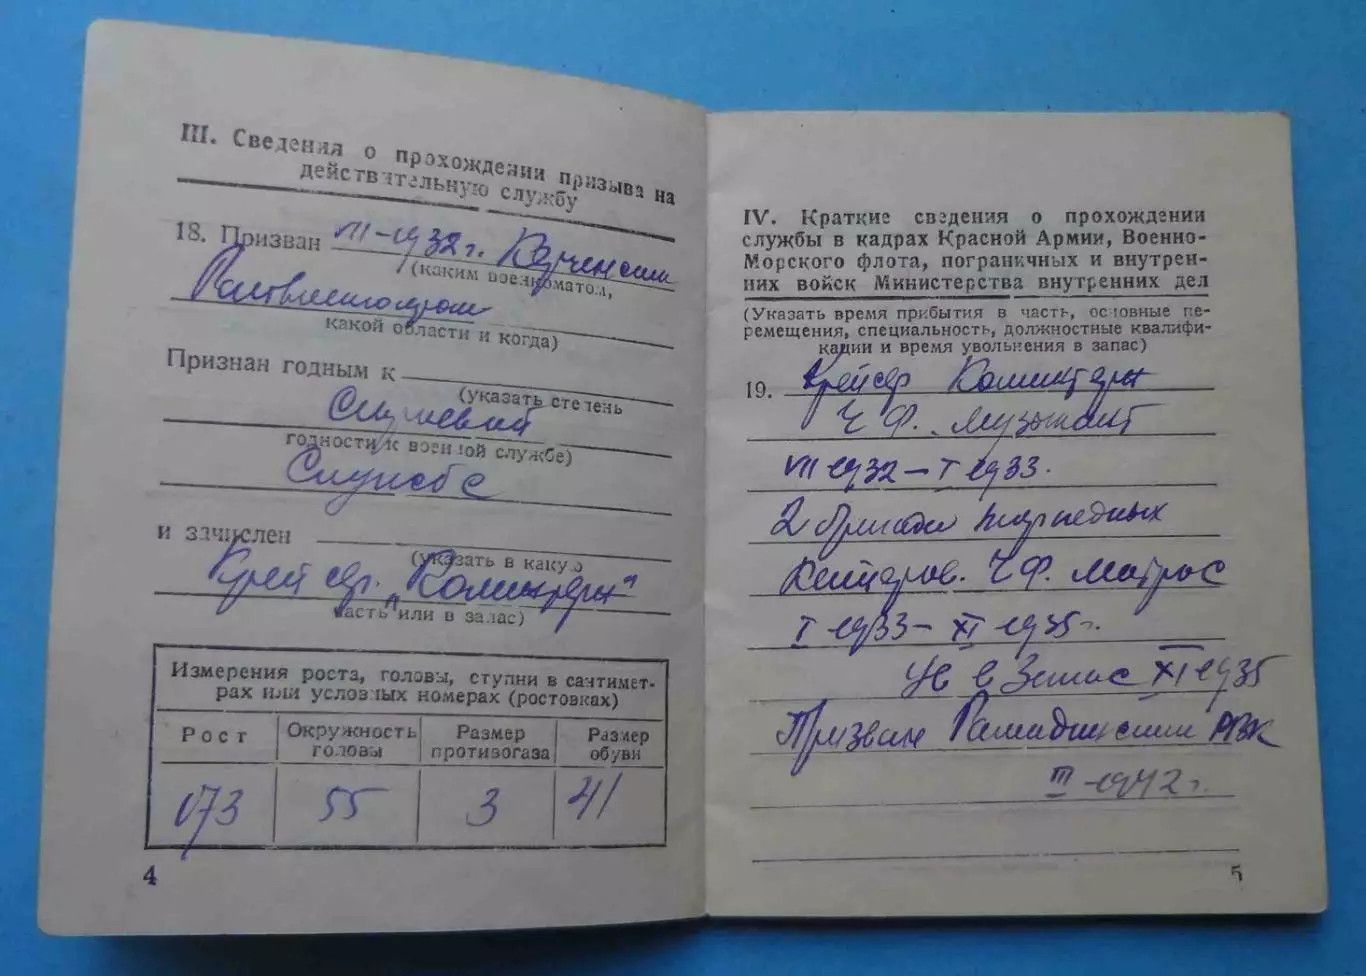 III. Сведения о прохождении призыва на
действительную службу
18. Призван VIII-1932г. Керченским
(каким военкоматом,
какой области и когда)
Признан годным к
(указать степень
Строевой
годности к военной службе)
Службе
и зачислен
(указать в какую
Крейсер „Коминтерн"
часть или в запас)
Измерения роста, головы, ступни в сантимет-
рах или условных номерах (ростовках)
Рост Окружность головы Размер противогаза Размер обуви
173 55 3 41
4
IV. Краткие сведения о прохождении
службы в кадрах Красной Армии, Военно-
Морского флота, пограничных и внутрен-
них войск Министерства внутренних дел
(Указать время прибытия в часть, основные пе-
ремещения, специальность, должностные квалифи-
кации и время увольнения в запас)
19. Крейсер Коминтерн
Ч.Ф. музыкант
VIII 1932 – I 1933.
2 бригада торпедных
катеров. Ч.Ф. матрос
I 1933 – XI 1935г.
Ув в Запас XI 1935
Призван РВК
III-1942г.
5